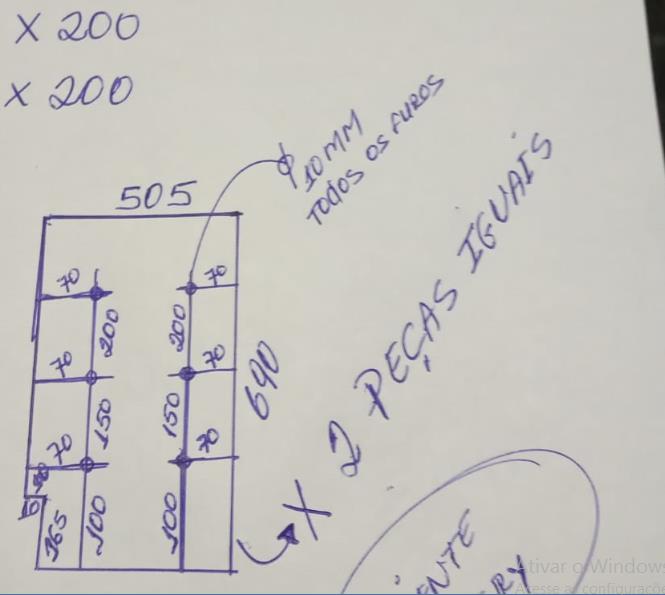 X 200
X 200
505
Φ 10MM
TODOS OS FUROS
70
70
200
200
70
70
690
150
150
70
70
165
100
100
X 2 PEÇAS IGUAIS
ENTE
RY
Ativar o Windows
Acesse as configuraçõe